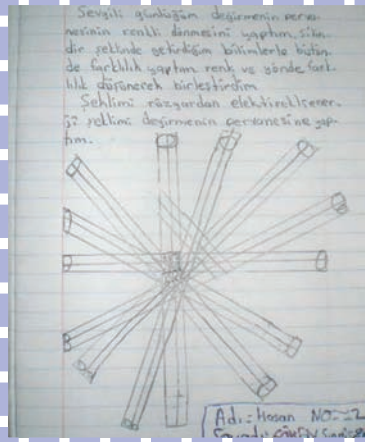 Sevgili günlüğüm değirmenin perva-
nesinin renkli dönmesini yaptım. silin-
dir şeklinde getirdiğim bilimlerle bütün-
de farklılık yaptım renk ve yönde fark-
lılık düşünerek birleştirdim.
Şeklimi rüzgardan elektirekl ener-
ji şeklimi değirmenin pervanesine yap-
tım.
Adı: Hasan NO:
Soyadı: